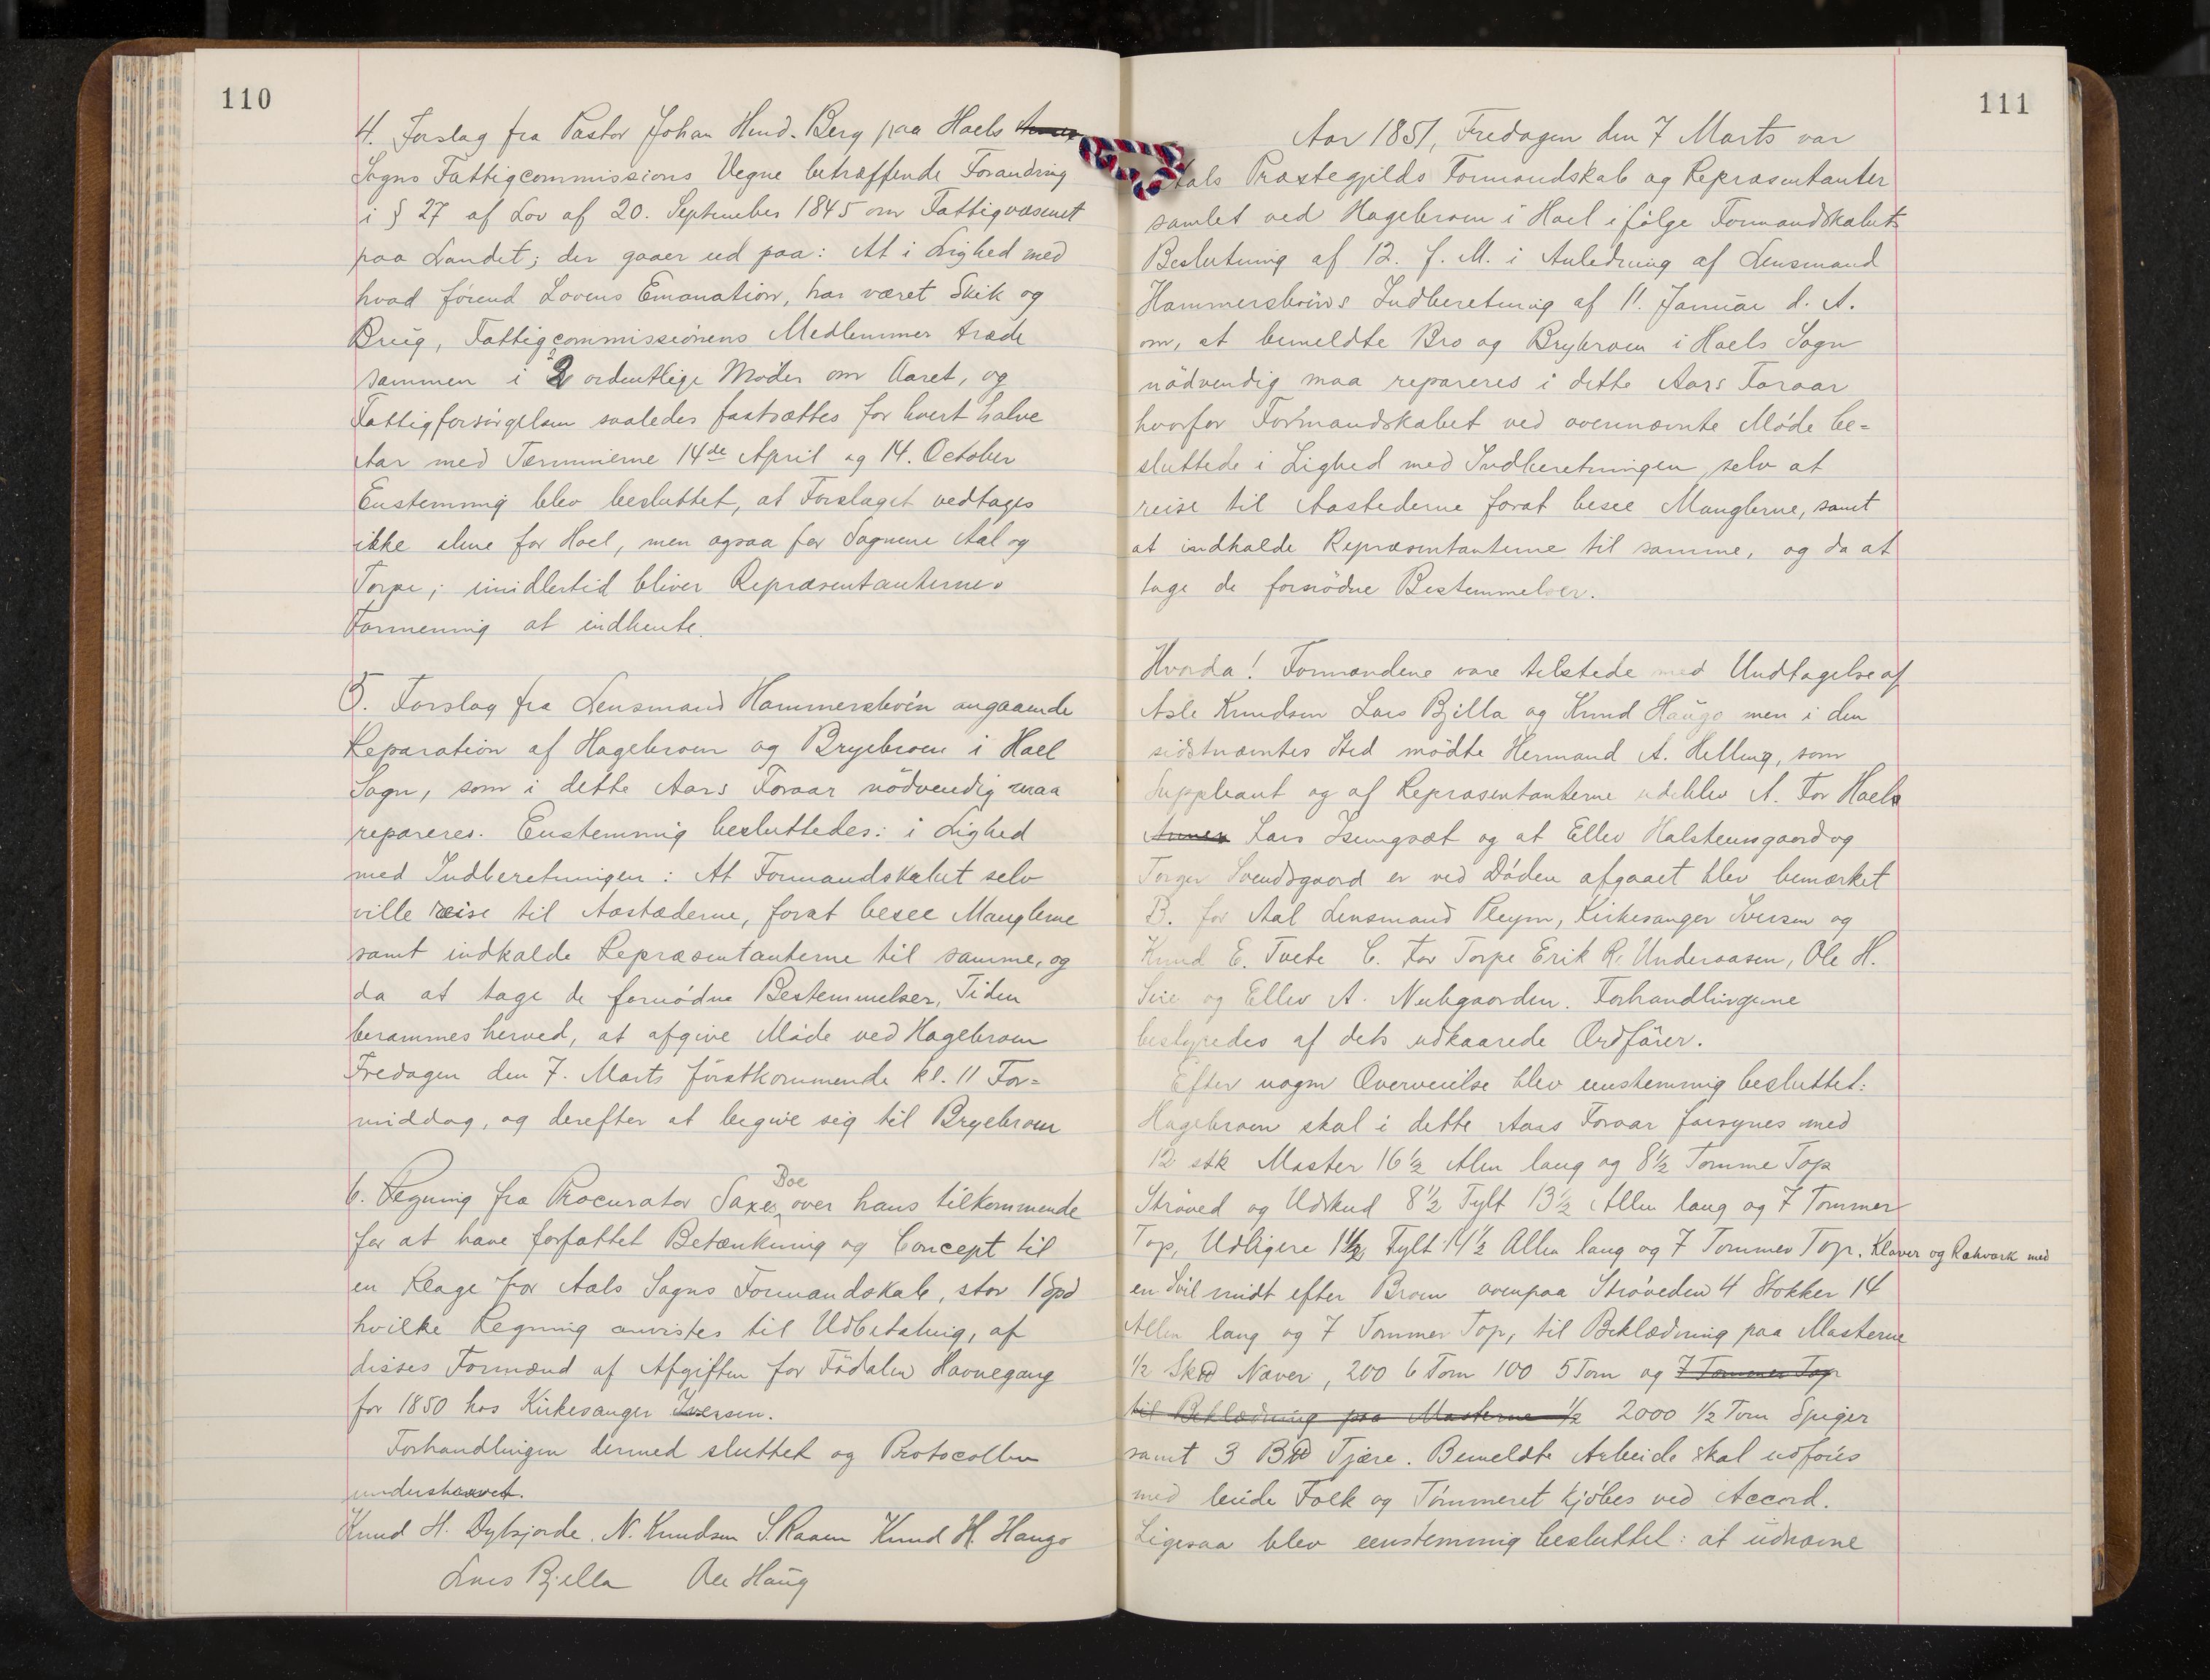 110
4. Forslag fra Pastor Johan Hmd. Berg paa Hoels Annex
Sogns Fattigcommissions Vegne betræffende Forandring
i § 27 af Lov af 20. September 1845 om Fattigvæsenet
paa Landet; der gaaer ud paa: At i Lighed med
hvad förend Lovens Emanation, har været Skik og
Brug, Fattigcommissionens Medlemmer træde
sammen i 2 ordentlige Møder om Aaret, og
Fattigforsörgelsen saaledes fastsættes for hvert halve
Aar med Terminerne 14de April og 14. October
Eenstemmig blev besluttet, at Forslaget vedtages
ikke alene for Hoel, men ogsaa for Sognene Aal og
Torpe; imidlertid bliver Repræsentanternes
Formening at indhente.
5. Forslag fra Lensmand Hammersbøen angaaende
Reparation af Hagebroen og Bryebroen i Hoel
Sogn, som i dette Aars Foraar nödvendig maa
repareres. Eenstemmig besluttedes: i Lighed
med Indberetningen: At Formandskabet selv
ville reise til Aastæderne, forat besee Manglerne
samt indkalde Repræsentanterne til samme, og
da at tage de fornødne Bestemmelser, Tiden
berammes herved, at afgive Møde ved Hagebroen
Fredagen den 7. Marts förstkommende kl. 11 For=
middag, og derefter at begive sig til Bryebroen
6. Regning fra Procurator Saxes Boe over hans tilkommende
for at have forfattet Betænkning og Concept til
en Klage for Aals Sogns Formandskab, stor 1 Spd
hvilke Regning anvistes til Udbetaling, af
disses Formænd af Afgiften for Fødalen Havnegang
for 1850 hos Kirkesanger Iversen.
Forhandlingen dermed sluttet og Protocollen
underskrevet.
Knud H. Dybsjorde. N. Knudsen S. Raaen Knud H. Haugo
Lars Bjella Ole Haug
111
Aar 1851, Fredagen den 7 Marts var
Aals Præstegjilds Formandskab og Repræsentanter
samlet ved Hagebroen i Hoel i følge Formandskabets
Beslutning af 12. f. M. i Anledning af Lensmand
Hammersbøens Indberetning af 11. Januar d. A.
om, at bemeldte Bro og Bryebroen i Hoels Sogn
nödvendig maa repareres i dette Aars Foraar
hvorfor Formandskabet ved ovennævnte Møde be=
sluttede i Lighed med Indberetningen, selv at
reise til Aastederne forat besee Manglerne, samt
at indkalde Repræsentanterne til samme, og da at
tage de fornödne Bestemmelser.
Hvorda! Formændene vare tilstede med Undtagelse af
Asle Knudsen Lars Bjella og Knud Haugo men i den
sidstnævntes Sted mödte Hermand A. Helling, som
Suppleant og af Repræsentanterne udeblev A. For Hoels
Annex Lars Isungsæt og at Ellev Halstensgaard og
Torger Svendsgaard er ved Døden afgaaet blev bemærket
B. for Aal Lensmand Pleym, Kirkesanger Iversen og
Knud E. Tvete C. For Torpe Erik R. Underaasen, Ole H.
Sire og Ellev A. Nubgaarden. Forhandlingerne
bestyredes af dets udkaarede Ordfører.
Efter nogen Overveielse blev eenstemmig besluttet:
Hagebroen skal i dette Aars Foraar forsynes med
12 stk Master 16½ Alen lang og 8½ Tomme Top
Strøved og Udskud 8½ Tylt 13½ Allen lang og 7 Tommer
Top, Udligere 1½ Tylt 14½ Allen lang og 7 Tommer Top. Klaver og Rækværk med
en Svil midt efter Broen ovenpaa Strøveden 4 Stokker 14
Allen lang og 7 Tommer Top, til Beklædning paa Masterne
1/2 Sk℔ Næver, 200 6 Tom 100 5 Tom og 7 Tommer Top
til Beklædning paa Masterne 1/2 2000 1/2 Tom Spiger
samt 3 B℔ Tjære. Bemeldte Arbeide skal udføres
med leiede Folk og Tømmeret kjöbes ved Accord.
Ligesaa blev eenstemmig besluttet: at udnævne